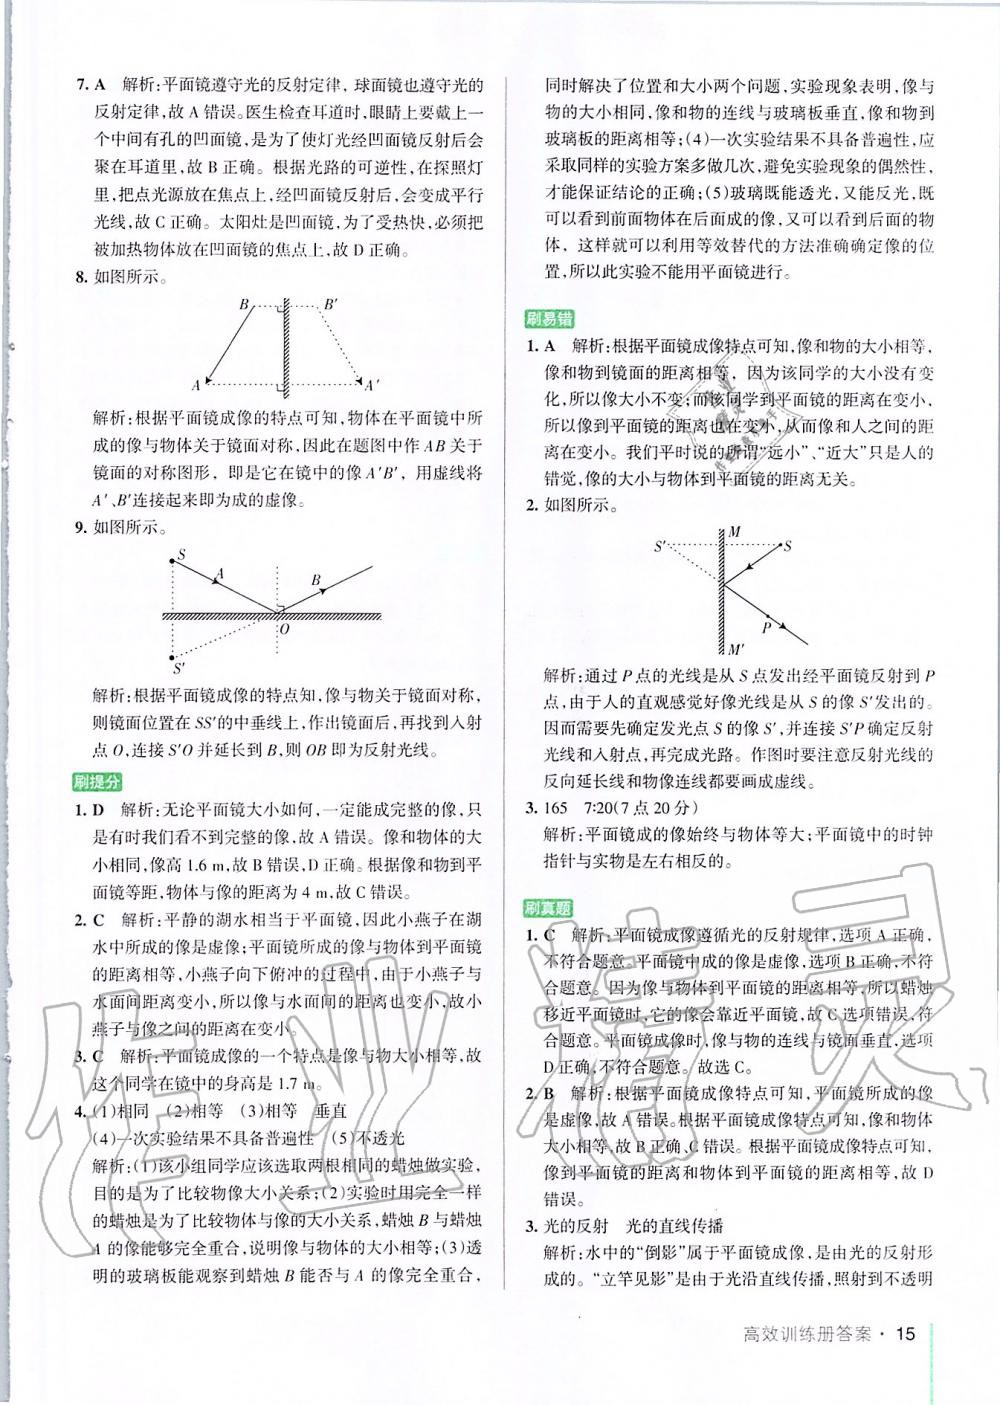 7. A 解析:平面镜遵守光的反射定律,球面镜也遵守光的
反射定律,故 A 错误。医生检查耳道时,眼睛上要戴上一
个中间有孔的凹面镜,是为了使灯光经凹面镜反射后会
聚在耳道里,故 B 正确。根据光路的可逆性,在探照灯
里,把点光源放在焦点上,经凹面镜反射后,会变成平行
光线,故 C 正确。太阳灶是凹面镜,为了受热快,必须把
被加热物体放在凹面镜的焦点上,故 D 正确。
8. 如图所示。
B B′
A A′
解析:根据平面镜成像的特点可知,物体在平面镜中所
成的像与物体关于镜面对称,因此在题图中作 AB 关于
镜面的对称图形,即是它在镜中的像 A′B′,用虚线将
A′、B′连接起来即为成的虚像。
9. 如图所示。
S
A B
O
S′
解析:根据平面镜成像的特点知,像与物关于镜面对称,
则镜面位置在 SS′的中垂线上,作出镜面后,再找到入射
点 O,连接 S′O 并延长到 B,则 OB 即为反射光线。
刷提分
1. D 解析:无论平面镜大小如何,一定能成完整的像,只
是有时我们看不到完整的像,故 A 错误。像和物体的大
小相同,像高 1.6 m,故 B 错误,D 正确。根据像和物到平
面镜等距,物体与像的距离为 4 m,故 C 错误。
2. C 解析:平静的湖水相当于平面镜,因此小燕子在湖
水中所成的像是虚像;平面镜所成的像与物体到平面镜
的距离相等,小燕子向下俯冲的过程中,由于小燕子与
水面间距离变小,所以像与水面间的距离也变小,故小
燕子与像之间的距离在变小。
3. C 解析:平面镜成像的一个特点是像与物大小相等,故
这个同学在镜中的身高是 1.7 m。
4. (1)相同 (2)相等 (3)相等 垂直
(4)一次实验结果不具备普遍性 (5)不透光
解析:(1)该小组同学应该选取两根相同的蜡烛做实验,
目的是为了比较物像大小关系;(2)实验时用完全一样
的蜡烛是为了比较物体与像的大小关系,蜡烛 B 与蜡烛
A 的像能够完全重合,说明像与物体的大小相等;(3)透
明的玻璃板能观察到蜡烛 B 能否与 A 的像完全重合,
同时解决了位置和大小两个问题,实验现象表明,像与
物的大小相同,像和物的连线与玻璃板垂直,像和物到
玻璃板的距离相等;(4)一次实验结果不具备普遍性,应
采取同样的实验方案多做几次,避免实验现象的偶然性,
才能保证结论的正确;(5)玻璃既能透光,又能反光,既
可以看到前面物体在后面成的像,又可以看到后面的物
体,这样就可以利用等效替代的方法准确确定像的位
置,所以此实验不能用平面镜进行。
刷易错
1. A 解析:根据平面镜成像特点可知,像和物的大小相等,
像和物到镜面的距离相等,因为该同学的大小没有变
化,所以像大小不变;而该同学到平面镜的距离在变小,
所以像到平面镜的距离也在变小,从而像和人之间的距
离在变小。我们平时说的“远小”、“近大”只是人的
错觉,像的大小与物体到平面镜的距离无关。
2. 如图所示。
M
S′ S
P
M′
解析:通过 P 点的光线是从 S 点发出经平面镜反射到 P
点,由于人的直观感觉好像光线是从 S 的像 S′发出的。
因而需要先确定发光点 S 的像 S′,并连接 S′P 确定反射
光线和入射点,再完成光路。作图时要注意反射光线的
反向延长线和物像连线都要画成虚线。
3. 165 7:20(7 点 20 分)
解析:平面镜成的像始终与物体等大;平面镜中的时钟
指针与实物是左右相反的。
刷真题
1. C 解析:平面镜成像遵循光的反射规律,选项 A 正确,
不符合题意。平面镜中成的像是虚像,选项 B 正确,不符
合题意。因为像与物体到平面镜的距离相等,所以蜡烛
移近平面镜时,它的像会靠近平面镜,故 C 选项错误,符
合题意。平面镜成像时,像与物的连线与镜面垂直,选项
D 正确,不符合题意。故选 C。
2. B 解析:根据平面镜成像特点可知,平面镜所成的像
是虚像,故 A 错误。根据平面镜成像特点可知,像和物体
大小相等,故 B 正确、C 错误。根据平面镜成像特点可知,
像到平面镜的距离和物体到平面镜的距离相等,故 D
错误。
3. 光的反射 光的直线传播
解析:水中的“倒影”属于平面镜成像,是由光的反射形
成的。“立竿见影”是由于光沿直线传播,照射到不透明
高效训练册答案 · 15
作业精灵